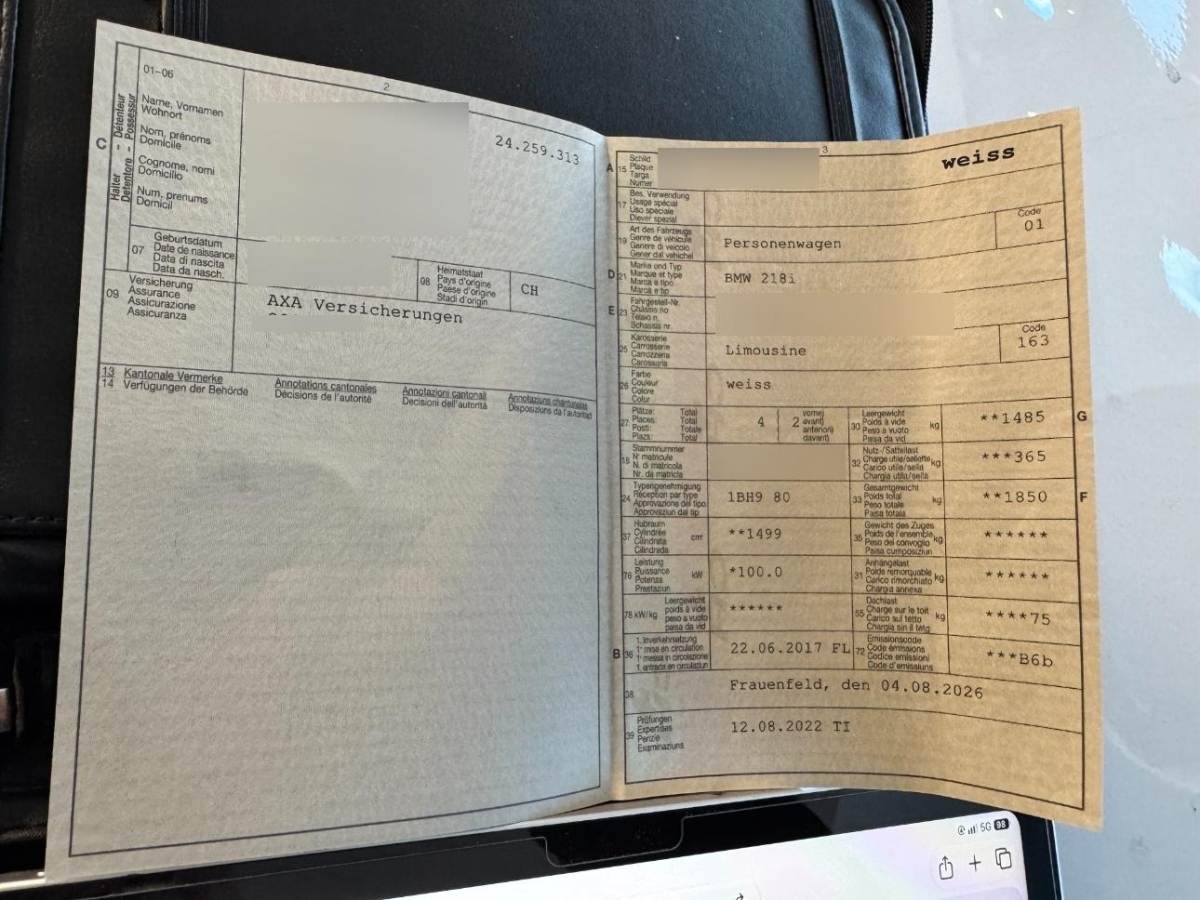 2
01-06
Name, Vornamen
Wohnort
Nom, prénoms
Domicile
Cognome, nomi
Domicilio
Num, prenums
Domicil
C
Halter - Détenteur
Detentore - Possessur
24.259.313
07
Geburtsdatum
Date de naissance
Data di nascita
Data da nasch.
08
Heimatstaat
Pays d'origine
Paese d'origine
Stadi d'origin
CH
09
Versicherung
Assurance
Assicurazione
Assicuranza
AXA Versicherungen
13 Kantonale Vermerke
14 Verfügungen der Behörde
Annotations cantonales
Décisions de l'autorité
Annotazioni cantonali
Decisioni dell'autorità
Annotaziuns chantunalas
Disposiziuns da l'autoritad
3
A 15
Schild
Plaque
Targa
Numer
weiss
17
Bes. Verwendung
Usage spécial
Uso speciale
Diever spezial
19
Art des Fahrzeugs
Genre de véhicule
Genere di veicolo
Gener dal vehichel
Personenwagen
Code
01
D 21
Marke und Typ
Marque et type
Marca e tipo
Marca e tip
BMW 218i
E 23
Fahrgestell-Nr.
Châssis no
Telaio n.
Schassis nr.
25
Karosserie
Carrosserie
Carrozzeria
Carossaria
Limousine
Code
163
26
Farbe
Couleur
Colore
Colur
weiss
27
Plätze: Total
Places: Total
Posti: Totale
Plazs: Total
4
2
vorne)
avant)
anteriori)
davant)
30
Leergewicht
Poids à vide
Peso a vuoto
Paisa da vid
kg
**1485
G
18
Stammnummer
N° matricule
N. di matricola
Nr. da matricla
32
Nutz-/Sattellast
Charge utile/sellette
Carico utile/sella
Chargia utila/sella
kg
***365
24
Typengenehmigung
Réception par type
Approvazione del tipo
Approvaziun dal tip
1BH9 80
33
Gesamtgewicht
Poids total
Peso totale
Paisa totala
kg
**1850
F
37
Hubraum
Cylindrée
Cilindrata
Cilindrada
cm³
**1499
35
Gewicht des Zuges
Poids de l'ensemble
Peso del convoglio
Paisa cumposiziun
kg
******
76
Leistung
Puissance
Potenza
Prestaziun
kW
*100.0
31
Anhängelast
Poids remorquable
Carico rimorchiato
Chargia annexa
kg
******
78 kW/kg
Leergewicht
poids à vide
peso a vuoto
paisa da vid
******
55
Dachlast
Charge sur le toit
Carico sul tetto
Chargia sin il tetg
kg
****75
B 36
1. Inverkehrsetzung
1re mise en circulation
1a messa in circolazione
1. entrada en circulaziun
22.06.2017 FL
72
Emissionscode
Code émissions
Codice emissioni
Code d'emissiuns
***B6b
38
Frauenfeld, den 04.08.2026
39
Prüfungen
Expertises
Perizie
Examinaziuns
12.08.2022 TI
5G 98